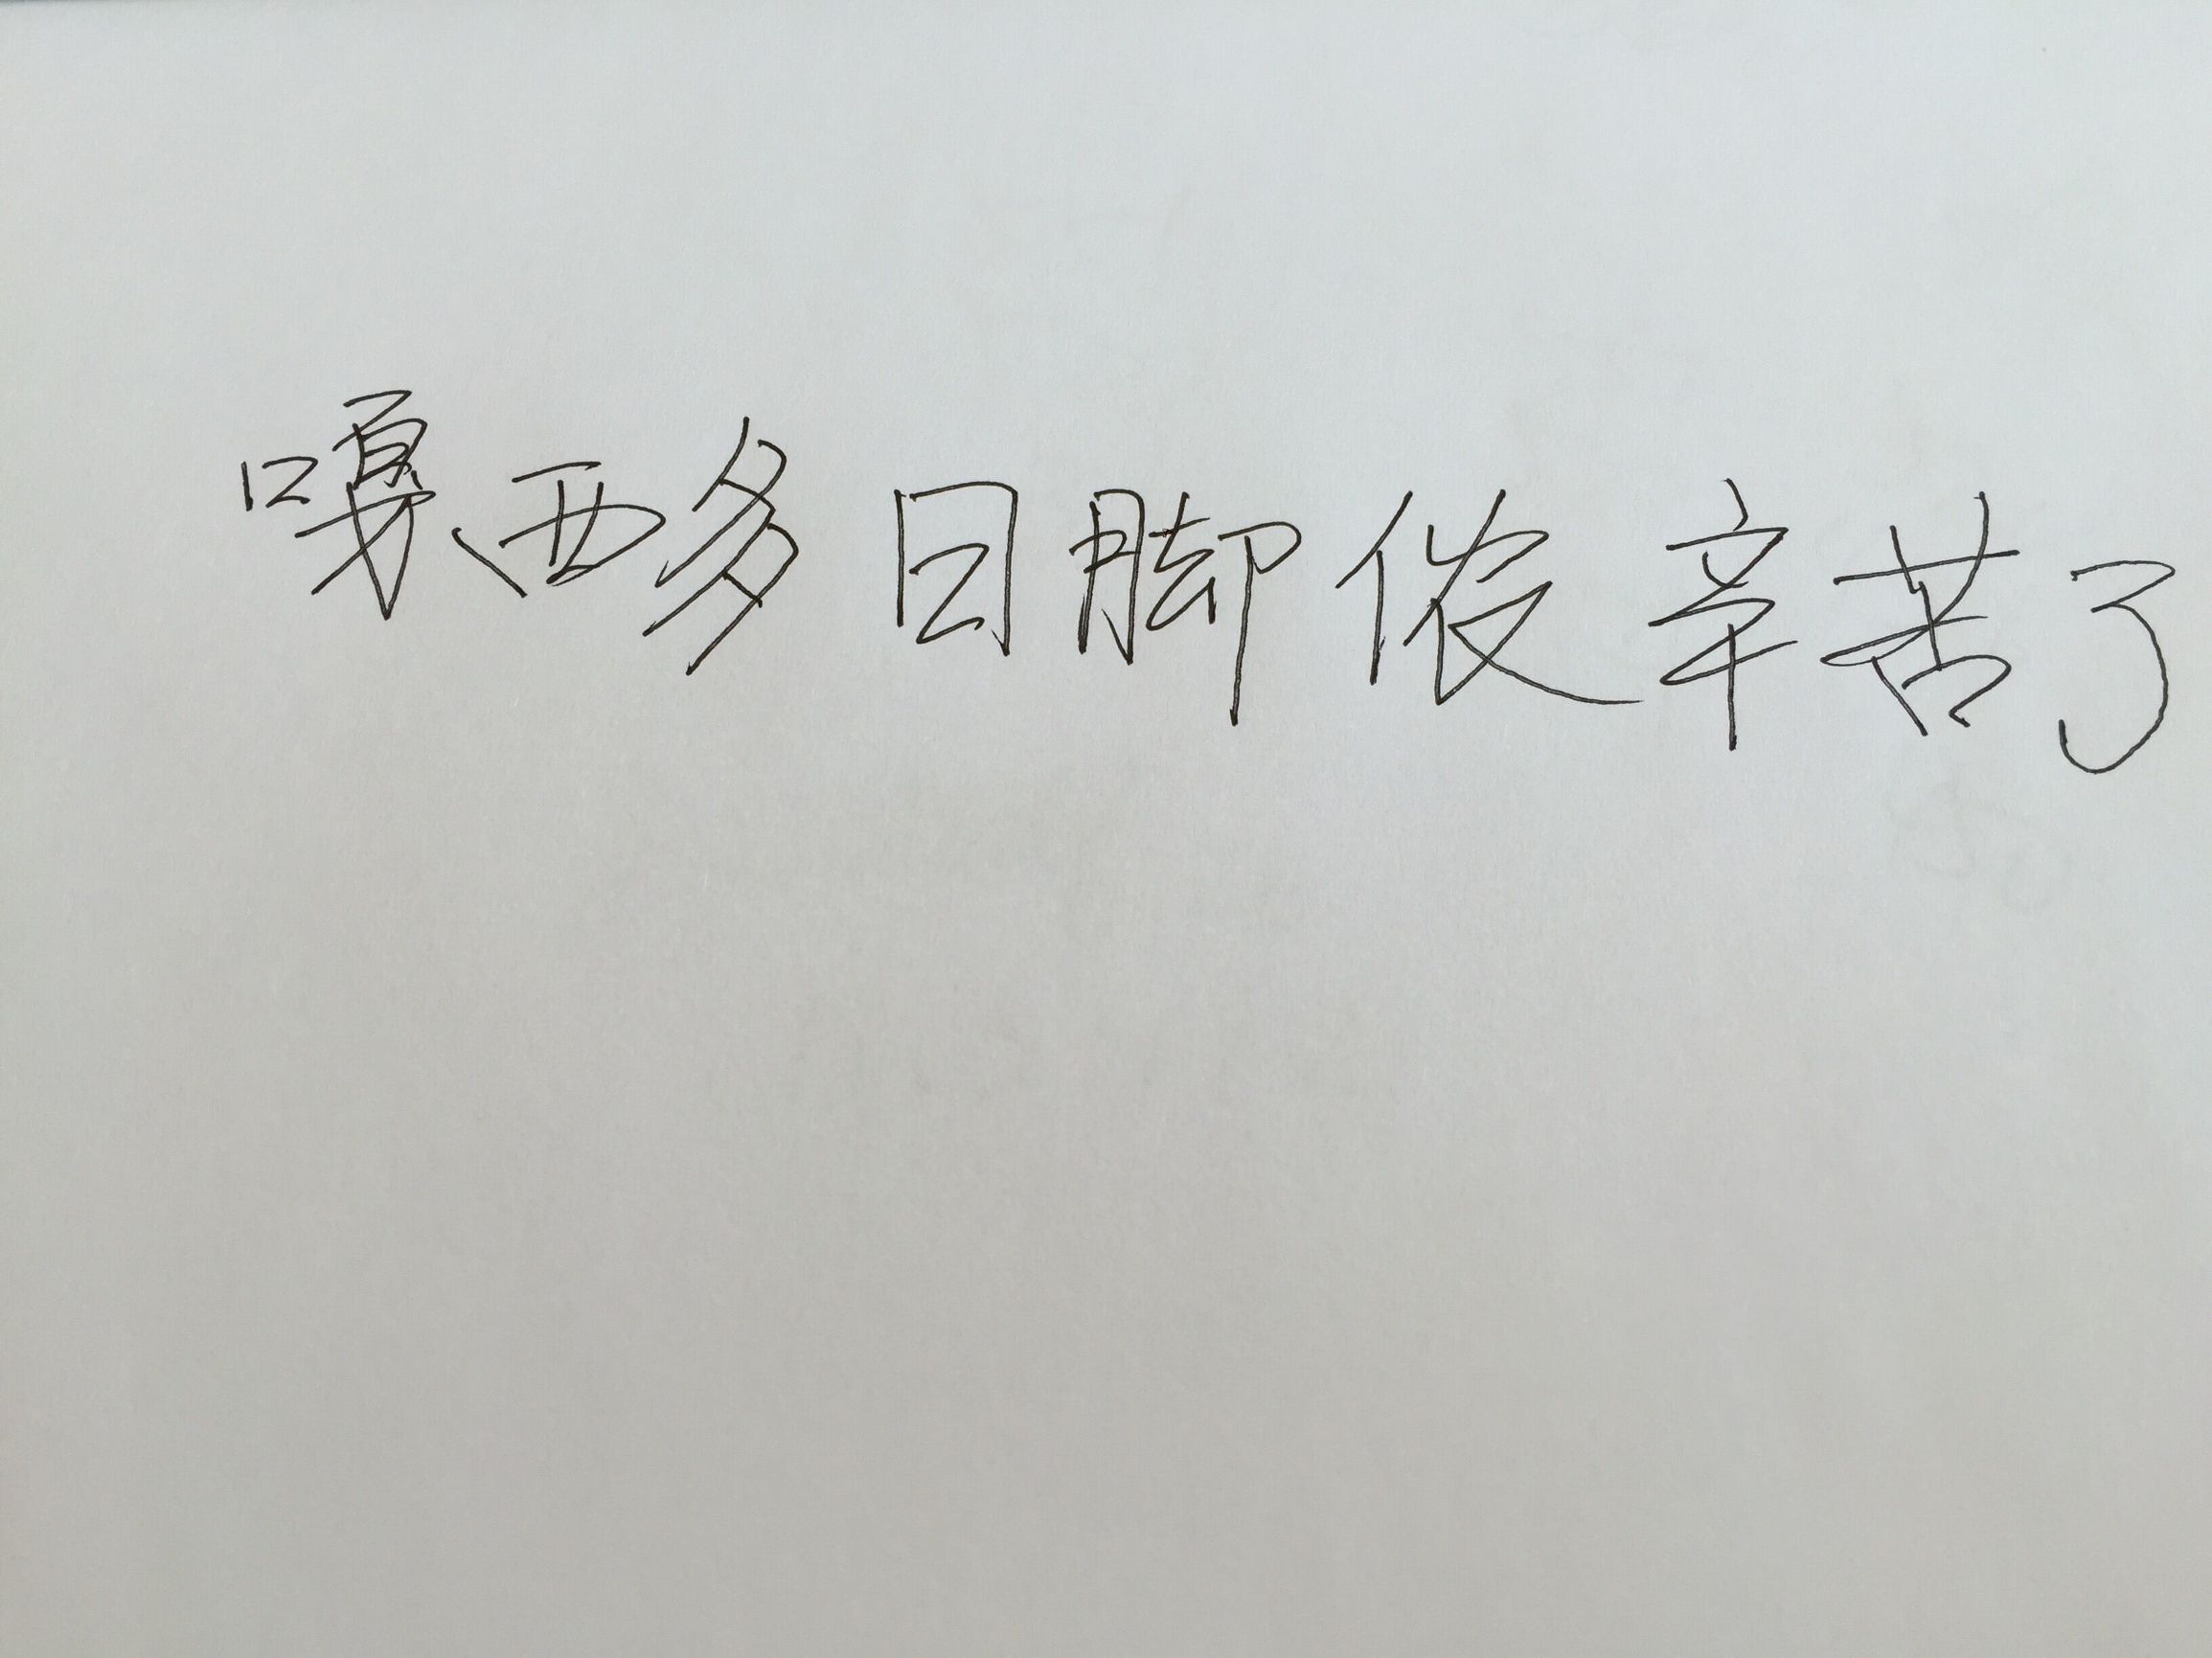 嘎西多日脚侬辛苦了